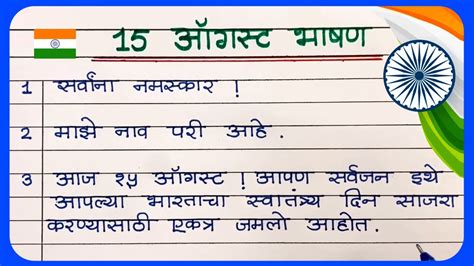 15 ऑगस्ट भाषण
1 सर्वांना नमस्कार !
2 माझे नाव परी आहे .
3 आज १५ ऑगस्ट ! आपण सर्वजन इथे
आपल्या भारताचा स्वातंत्र्य दिन साजरा
करण्यासाठी एकत्र जमलो आहोत.